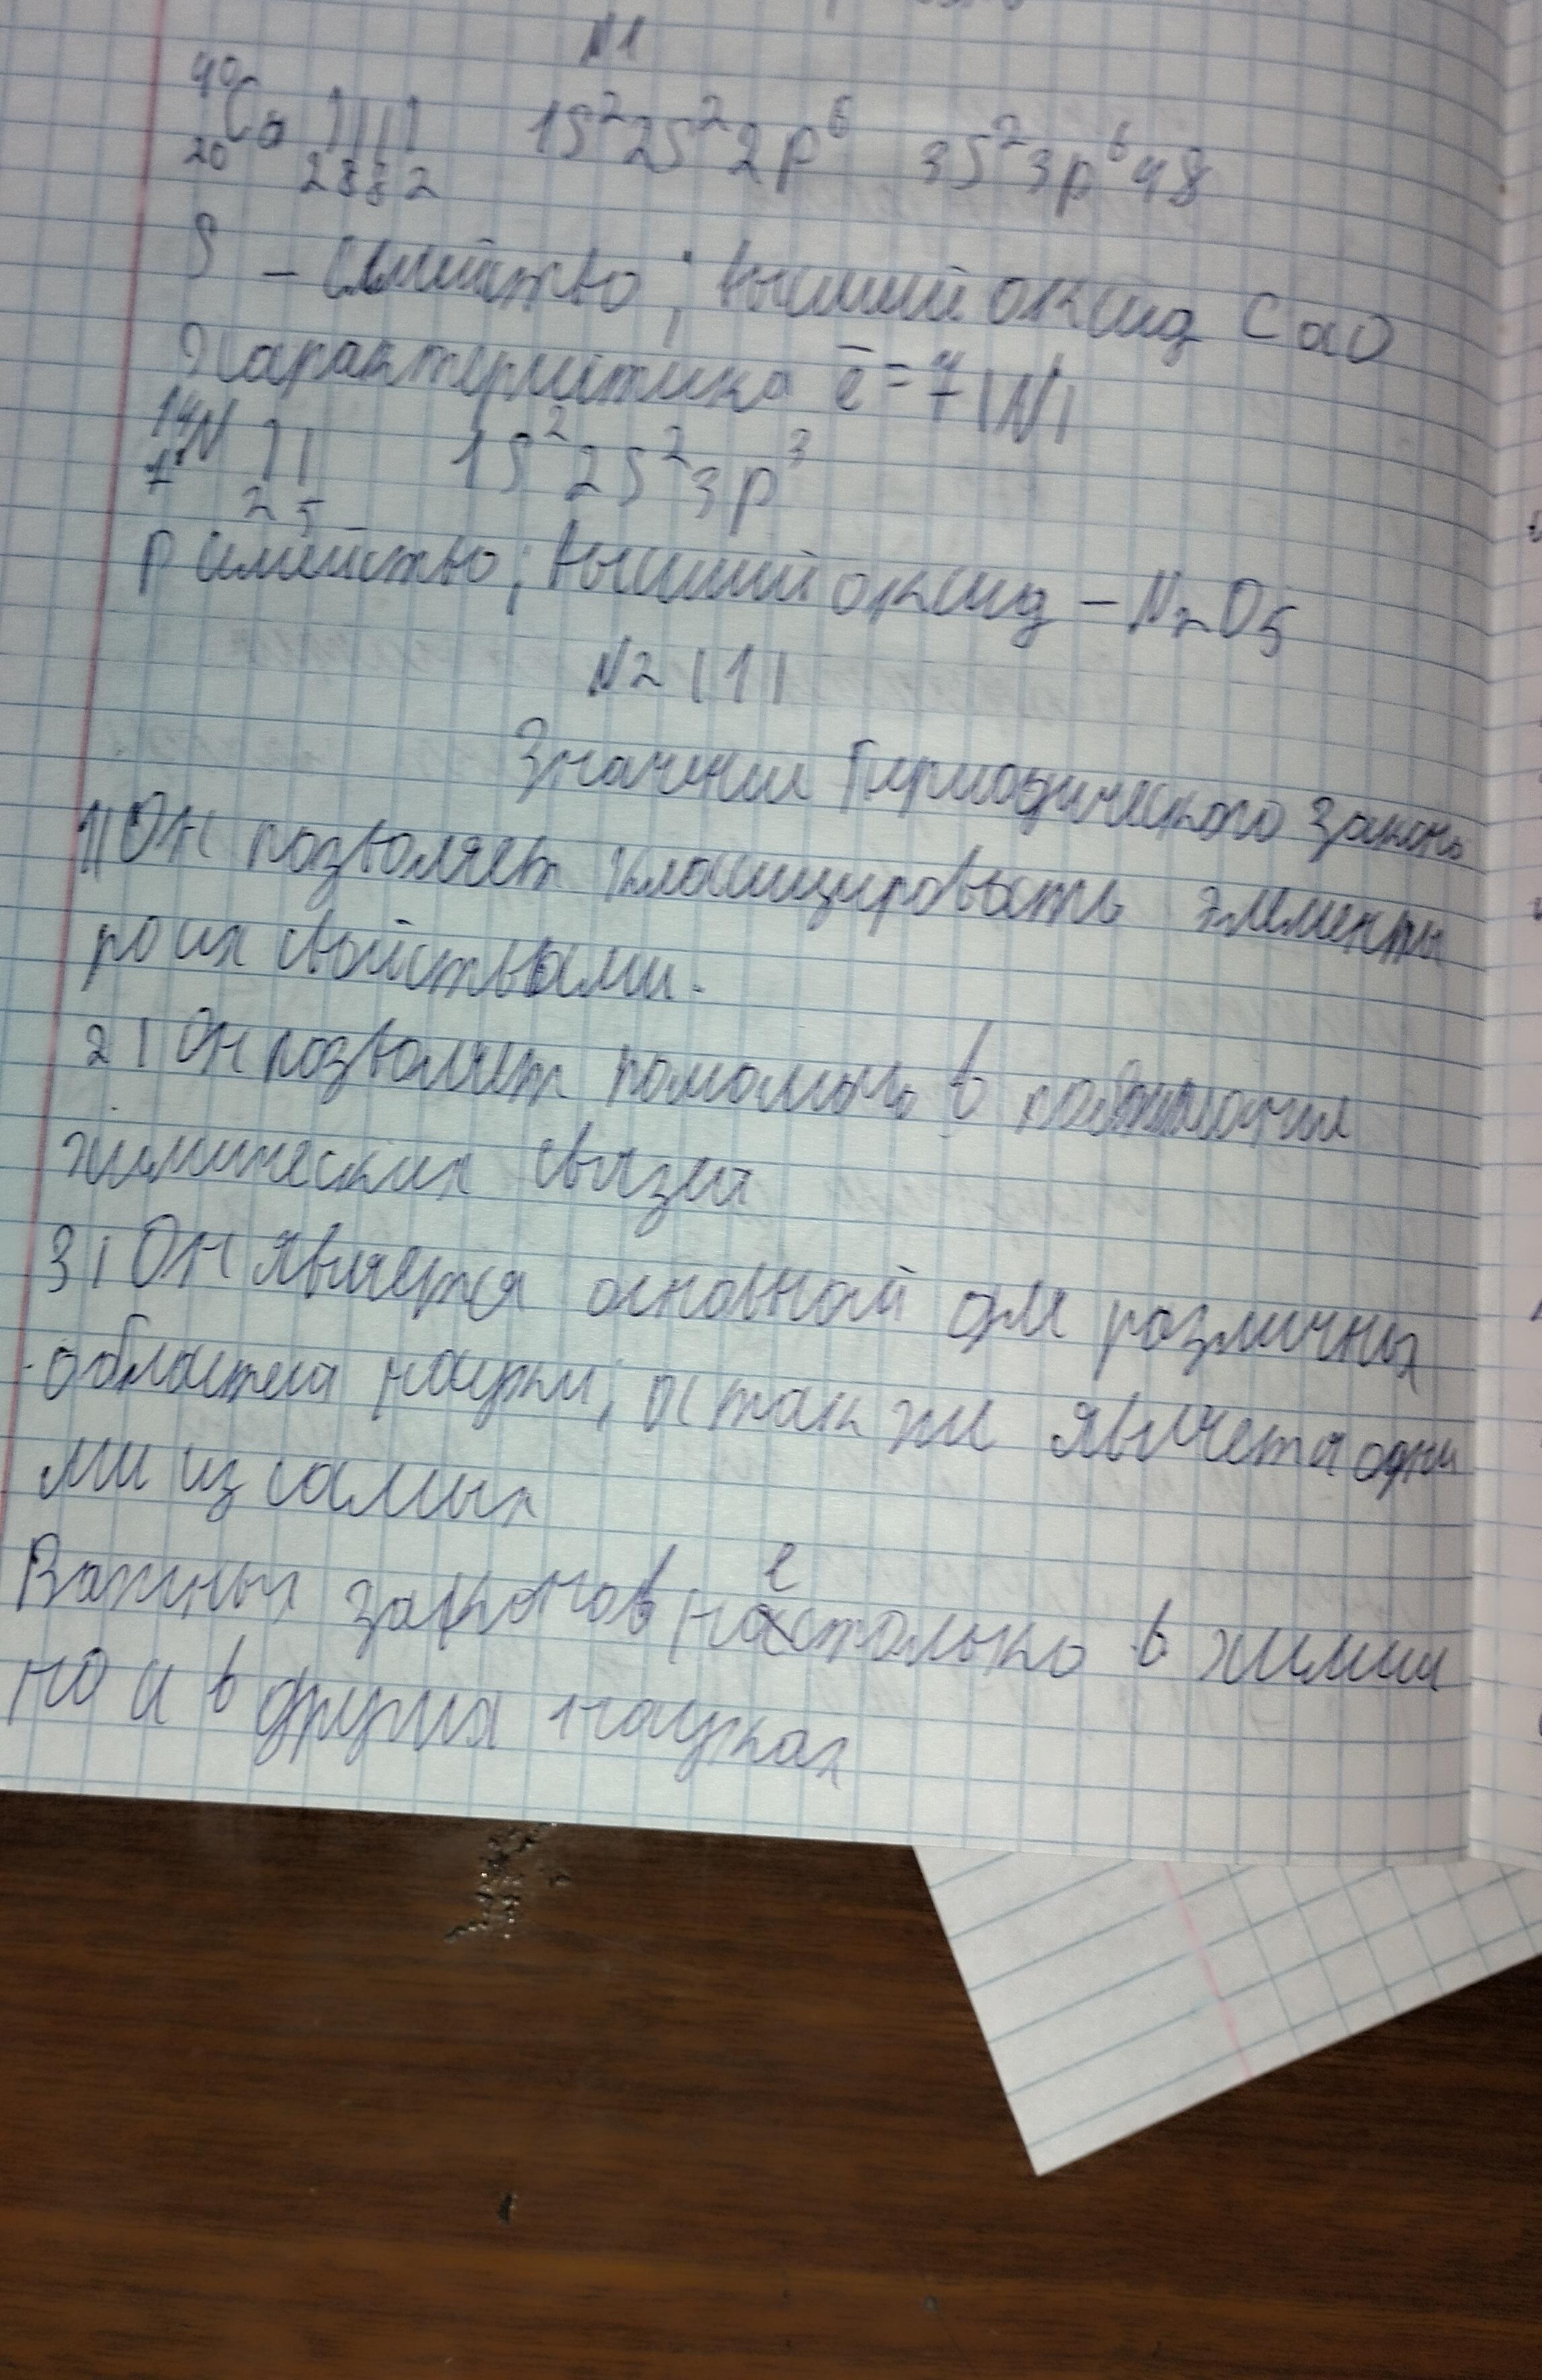 N1
⁴⁰₂₀Ca 1S²2S²2p⁶ 3S²3p⁶4S
2 8 8 2
S – семейство; высший оксид CaO
Характеристика e̅=7(N)
¹⁴₇N 1S²2S²3p³
2 5
p семейство; высший оксид – N₂O₅
N2 (1)
Значение Периодического закона
1) Он позволяет класицировать элементы
по их свойствами.
2) Он позволяет в
химических связей
3) Он является основной для различных
областей науки, а так же является одни
ми из самых
Важных законов, не столько в химии
но и в других науках